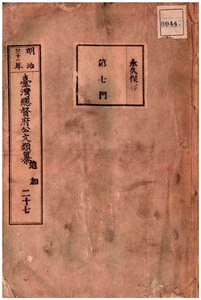 0044.
永久保存
第七門
明治三十一年
臺灣總督府公文類纂
追加
二十七